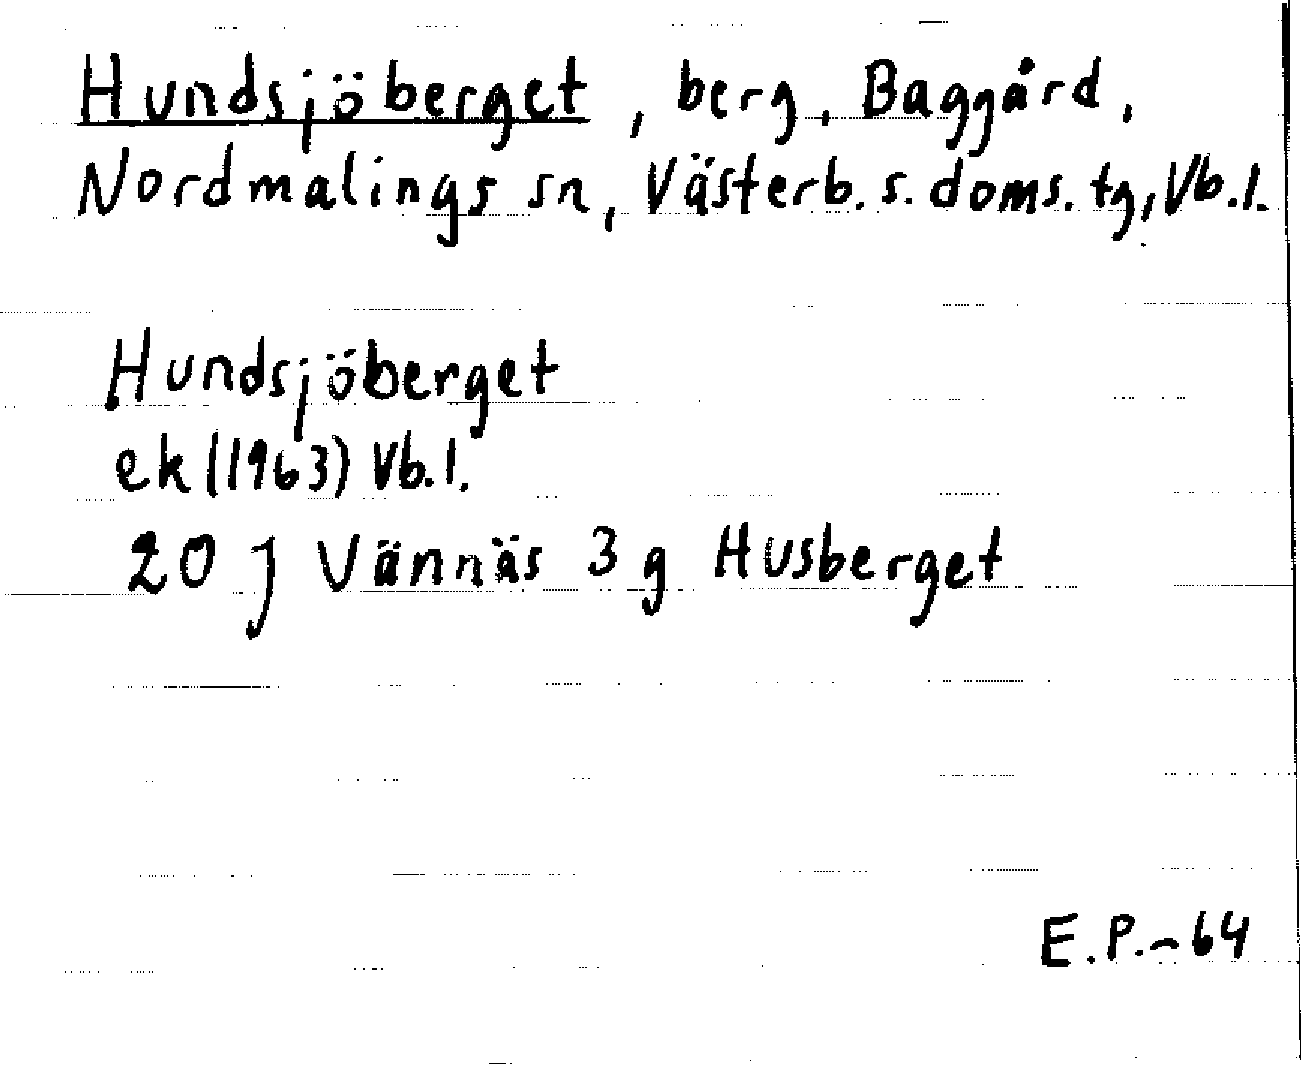 Hundsjöberget, berg, Baggård,
Nordmalings sn, Västerb. s. doms. tg, Vb. l.
Hundsjöberget
ek (1963) Vb. l.
20 J Vännäs 3 g Husberget
E. P. - 64